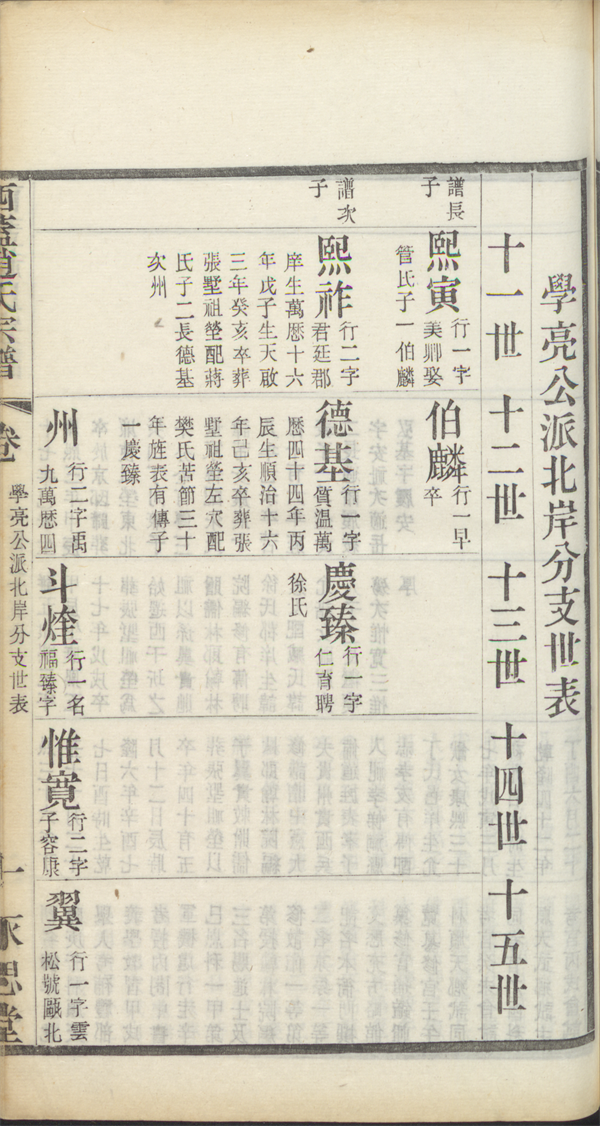 學亮公派北岸分支世表
十一世
十二世
十三世
十四世
十五世
譜長
子
熙寅
行一字
美卿娶
管氏子一伯麟
伯麟
行一早
卒
譜次
子
熙祚
行二字
君廷郡
庠生萬暦十六
年戊子生天啟
三年癸亥卒葬
張墅祖塋配蔣
氏子二長德基
次州
德基
行一字
質温萬
暦四十四年丙
辰生順治十六
年己亥卒葬張
墅祖塋左穴配
樊氏苦節三十
年旌表有傳子
一慶臻
慶臻
行一字
仁育聘
徐氏
州
行二字禹
九萬暦四
斗煃
行一名
福臻字
惟寬
行二字
子容康
翼
行一字雲
松號甌北
西蓋趙氏宗譜
卷
學亮公派北岸分支世表
一
永思堂